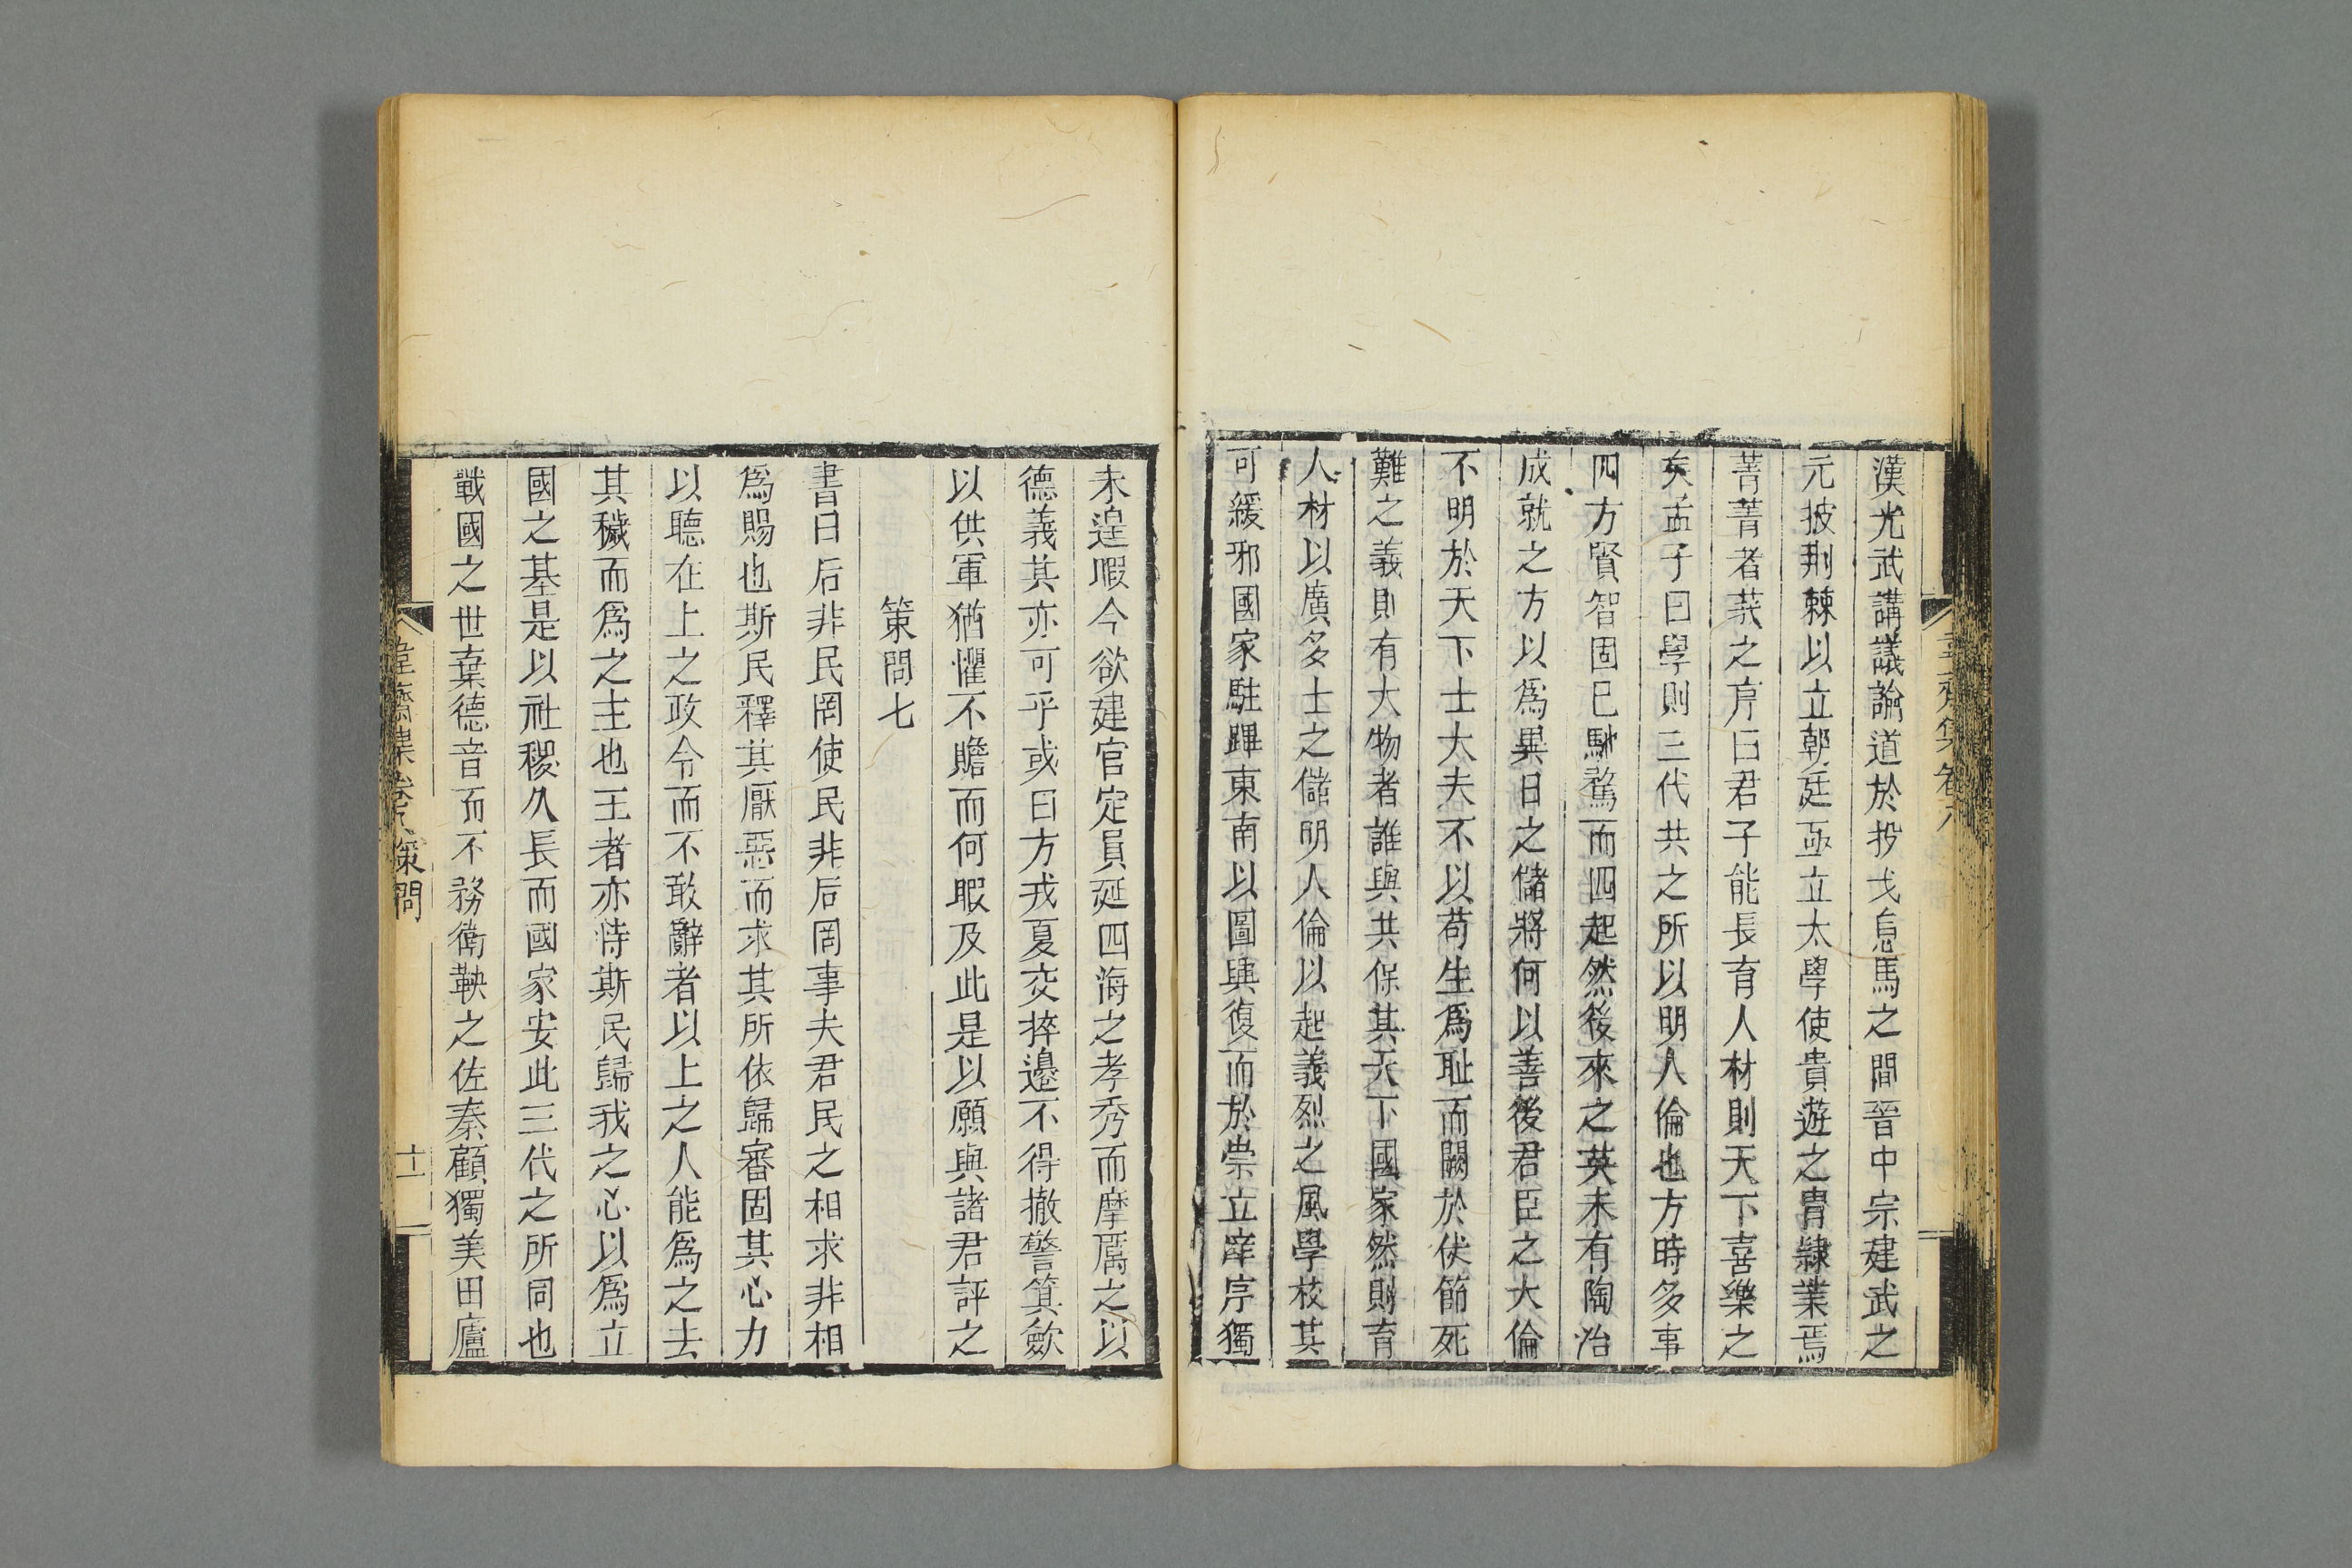 漢光武講議論道於投戈息馬之間晉中宗建武之
元披荆棘以立朝廷亟立太學使貴遊之胄隸業焉
菁菁者莪之序曰君子能長育人材則天下喜樂之
矣孟子曰學則三代共之所以明人倫也方時多事
四方賢智固已馳騖而四起然後來之英未有陶冶
成就之方以爲異日之儲將何以善後君臣之大倫
不明於天下士大夫不以苟生爲耻而闕於伏節死
難之義則有大物者誰與共保其天下國家然則育
人材以廣多士之儲明人倫以起義烈之風學校其
可緩邪國家駐蹕東南以圖興復而於崇立庠序獨
未遑暇今欲建官定員延四海之孝秀而摩厲之以
德義其亦可乎或曰方戎夏交捽邉不得撤警箕歛
以供軍猶懼不贍而何暇及此是以願與諸君評之
策問七
書曰后非民罔使民非后罔事夫君民之相求非相
爲賜也斯民釋其厭惡而求其所依歸審固其心力
以聽在上之政令而不敢辭者以上之人能爲之去
其穢而爲之主也王者亦恃斯民歸我之心以爲立
國之基是以社稷久長而國家安此三代之所同也
戰國之世棄德音而不務衛鞅之佐秦顧獨美田廬
韋齋集卷八 策問 十一